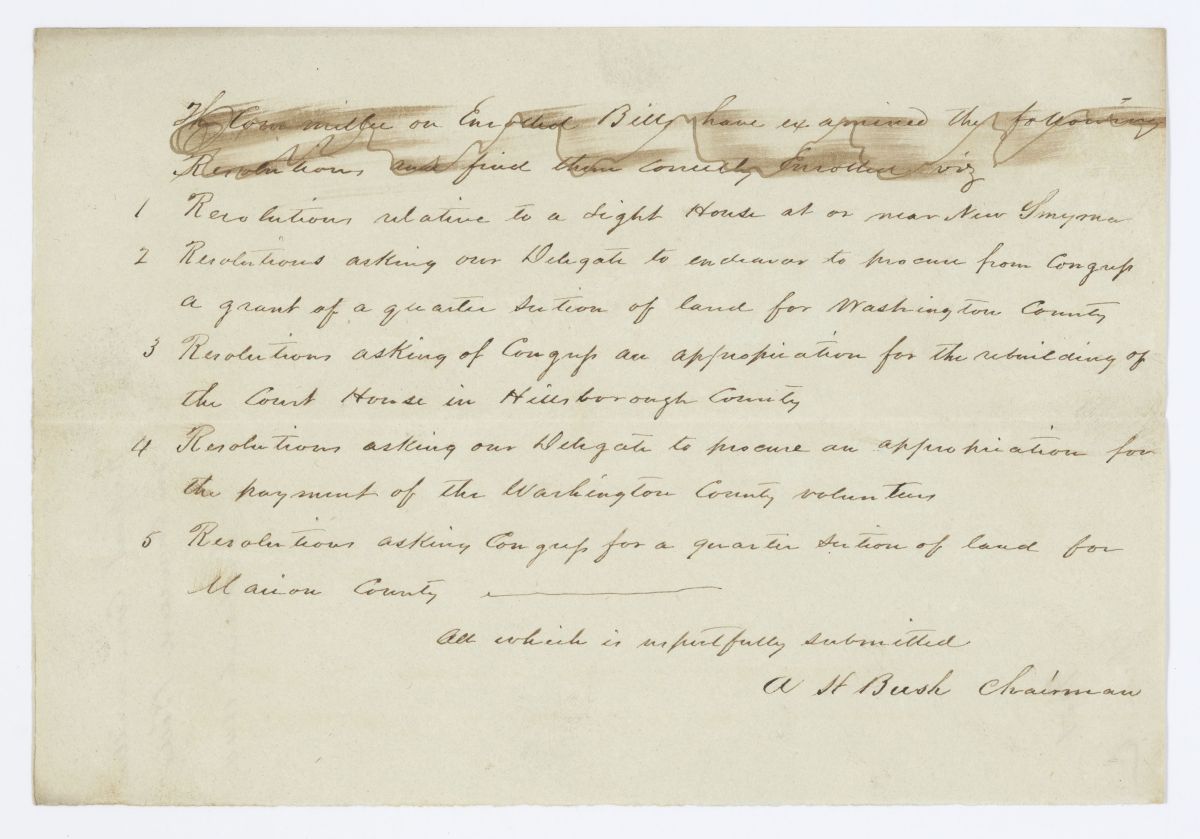 The Committee on Enrolled Bills have examined the following
Resolutions and find them correctly Enrolled viz
1 Resolutions relative to a Light House at or near New Smyrna
2 Resolutions asking our Delegate to endeavor to procure from Congress
a grant of a quarter Section of land for Washington County
3 Resolutions asking of Congress an appropriation for the rebuilding of
the Court House in Hillsborough County
4 Resolutions asking our Delegate to procure an appropriation for
the payment of the Washington County volunteers
5 Resolutions asking Congress for a quarter Section of land for
Marion County
All which is respectfully submitted
A H Bush Chairman